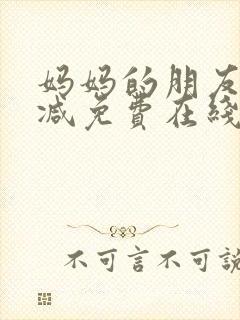 妈妈的朋友
减免费在线
不可言不可說